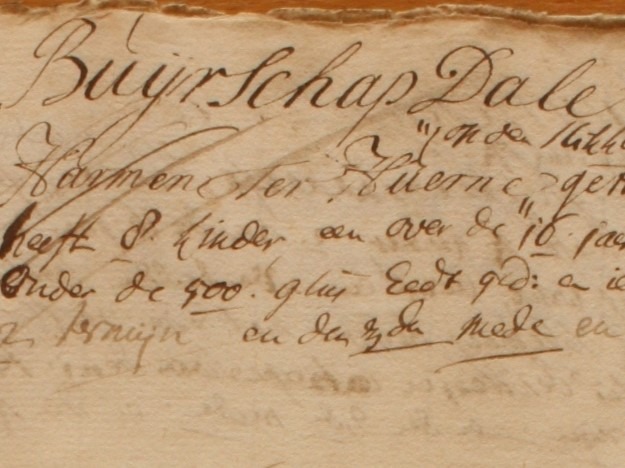 Buÿrschap Dale
op den
Harmen ter Huerne get
heeft 8. kinder een over de 10. jaer
onder de 500. gls Eedt ged: en
termijn en den 3den mede en